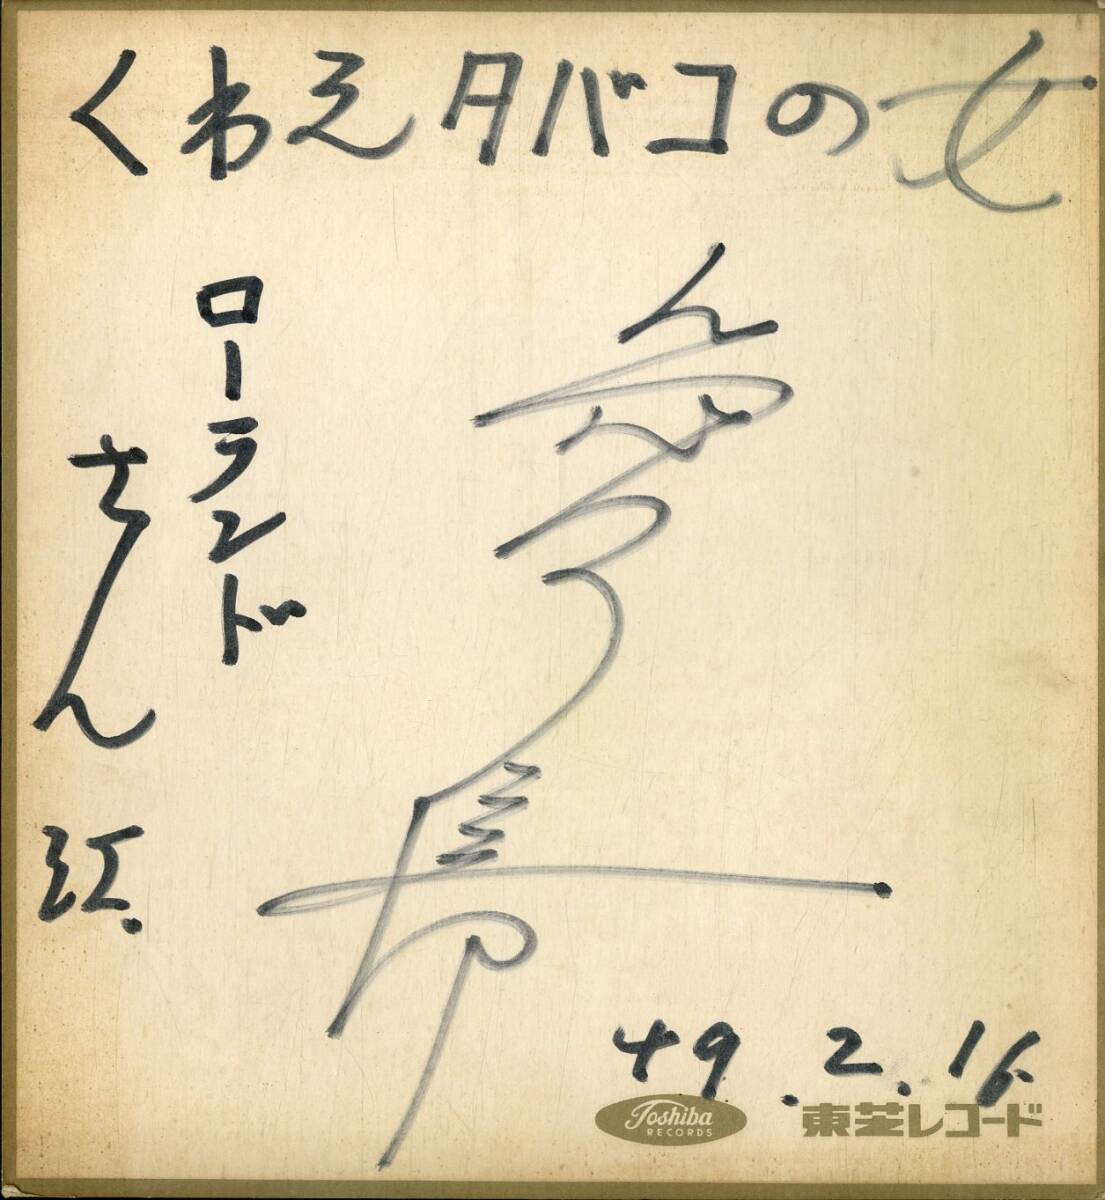 くわえタバコの女
ローランド
さん江
49.2.16
Toshiba
RECORDS
東芝レコード